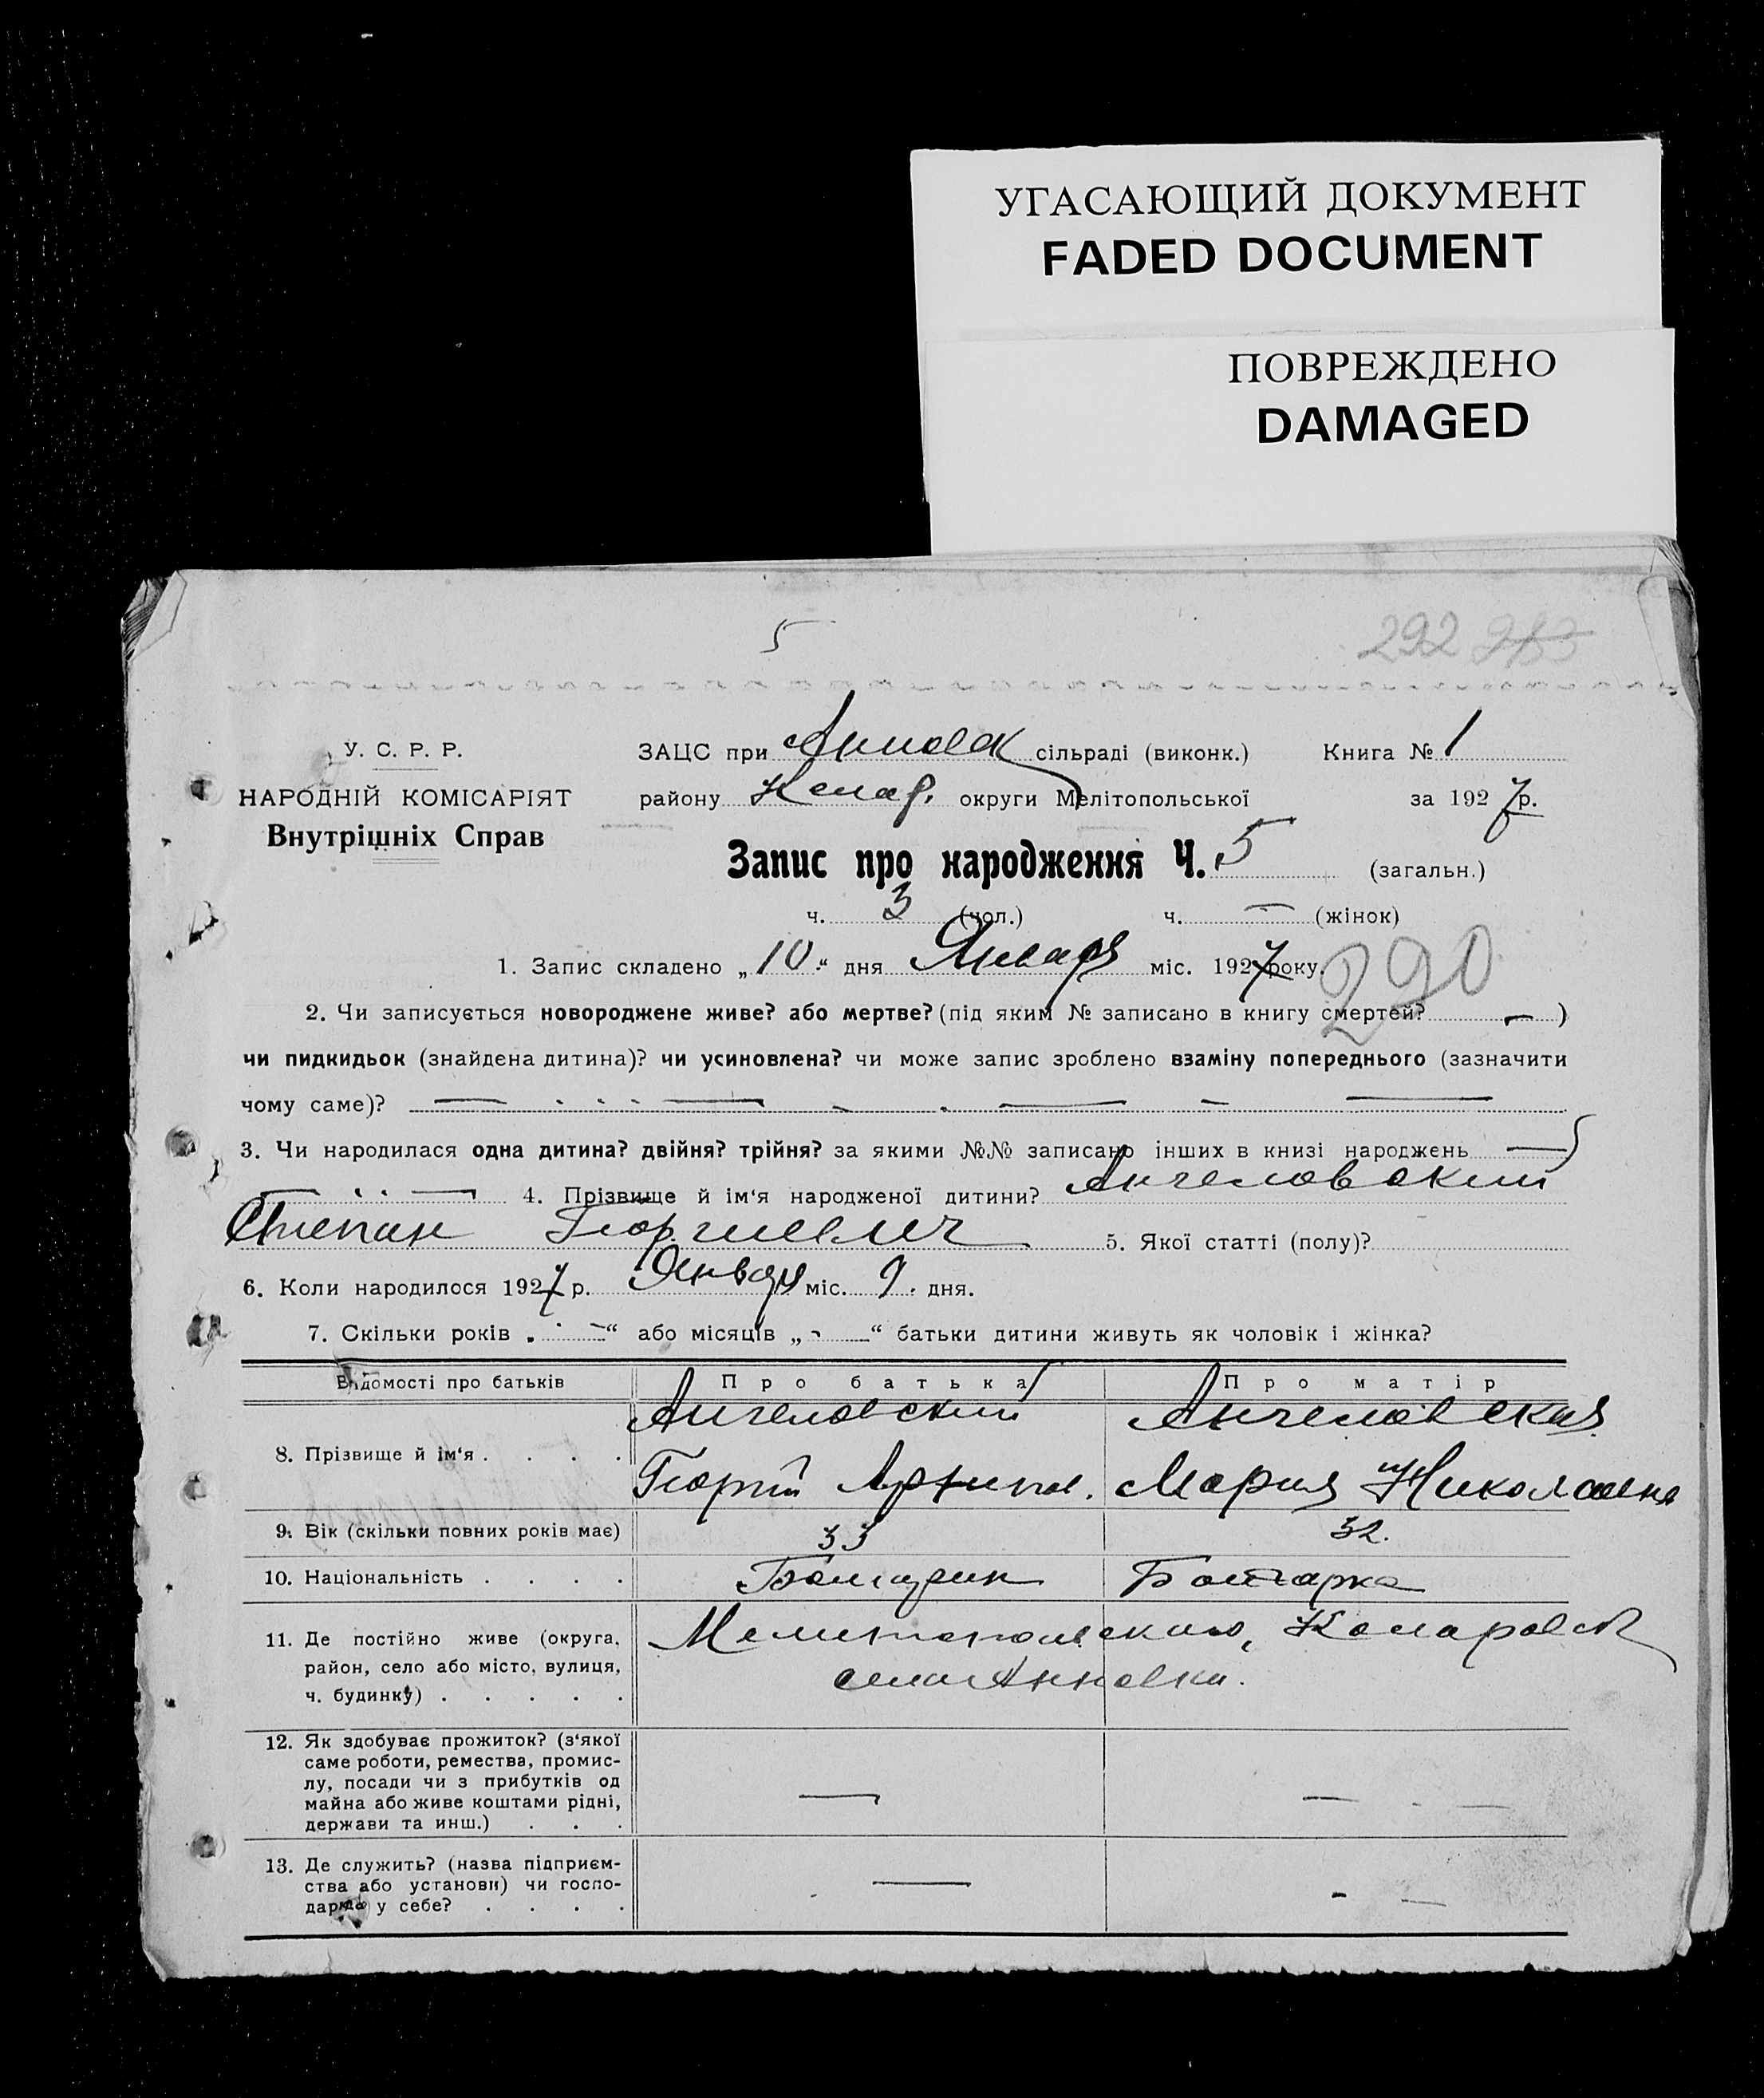 УГАСАЮЩИЙ ДОКУМЕНТ
FADED DOCUMENT
ПОВРЕЖДЕНО
DAMAGED
5
292
У. С. Р. Р.
НАРОДНІЙ КОМІСАРІЯТ
Внутрішніх Справ
ЗАЦС при сільраді (виконк.) Книга № 1
району округи Мелітопольської за 1927 р.
Запис про народження Ч. 5 (загальн.)
ч. 3 (чол.) ч. — (жінок)
1. Запис складено „10“ дня Января міс. 1927 року.
290
2. Чи записується новороджене живе? або мертве? (під яким № записано в книгу смертей? — )
чи пидкидьок (знайдена дитина)? чи усиновлена? чи може запис зроблено взаміну попереднього (зазначити
чому саме)?
3. Чи народилася одна дитина? двійня? трійня? за якими №№ записано інших в книзі народжень —
4. Прізвище й ім‘я народженої дитини? Ангеловский
Степан Георгиевич 5. Якої статті (полу)?
6. Коли народилося 1927 р. Января міс. 9 дня.
7. Скільки років „ — “ або місяців „ — “ батьки дитини живуть як чоловік і жінка?
Відомості про батьків Про батька Про матір
8. Прізвище й ім‘я . . . . Ангеловский Ангеловская
Георгий Архипов. Мария Николаевна
9. Вік (скільки повних років має) 33 32.
10. Національність . . . . Болгарин Болгарка
11. Де постійно живе (округа, район, село або місто, вулиця, ч. будинку) . . . . . Мелитопольского,
села Анновки.
12. Як здобуває прожиток? (з‘якої
саме роботи, ремества, промис-
лу, посади чи з прибутків од
майна або живе коштами рідні,
держави та инш.) . . . — —
13. Де служить? (назва підприєм-
ства або установи) чи госпо-
дарює у себе? . . . . — —